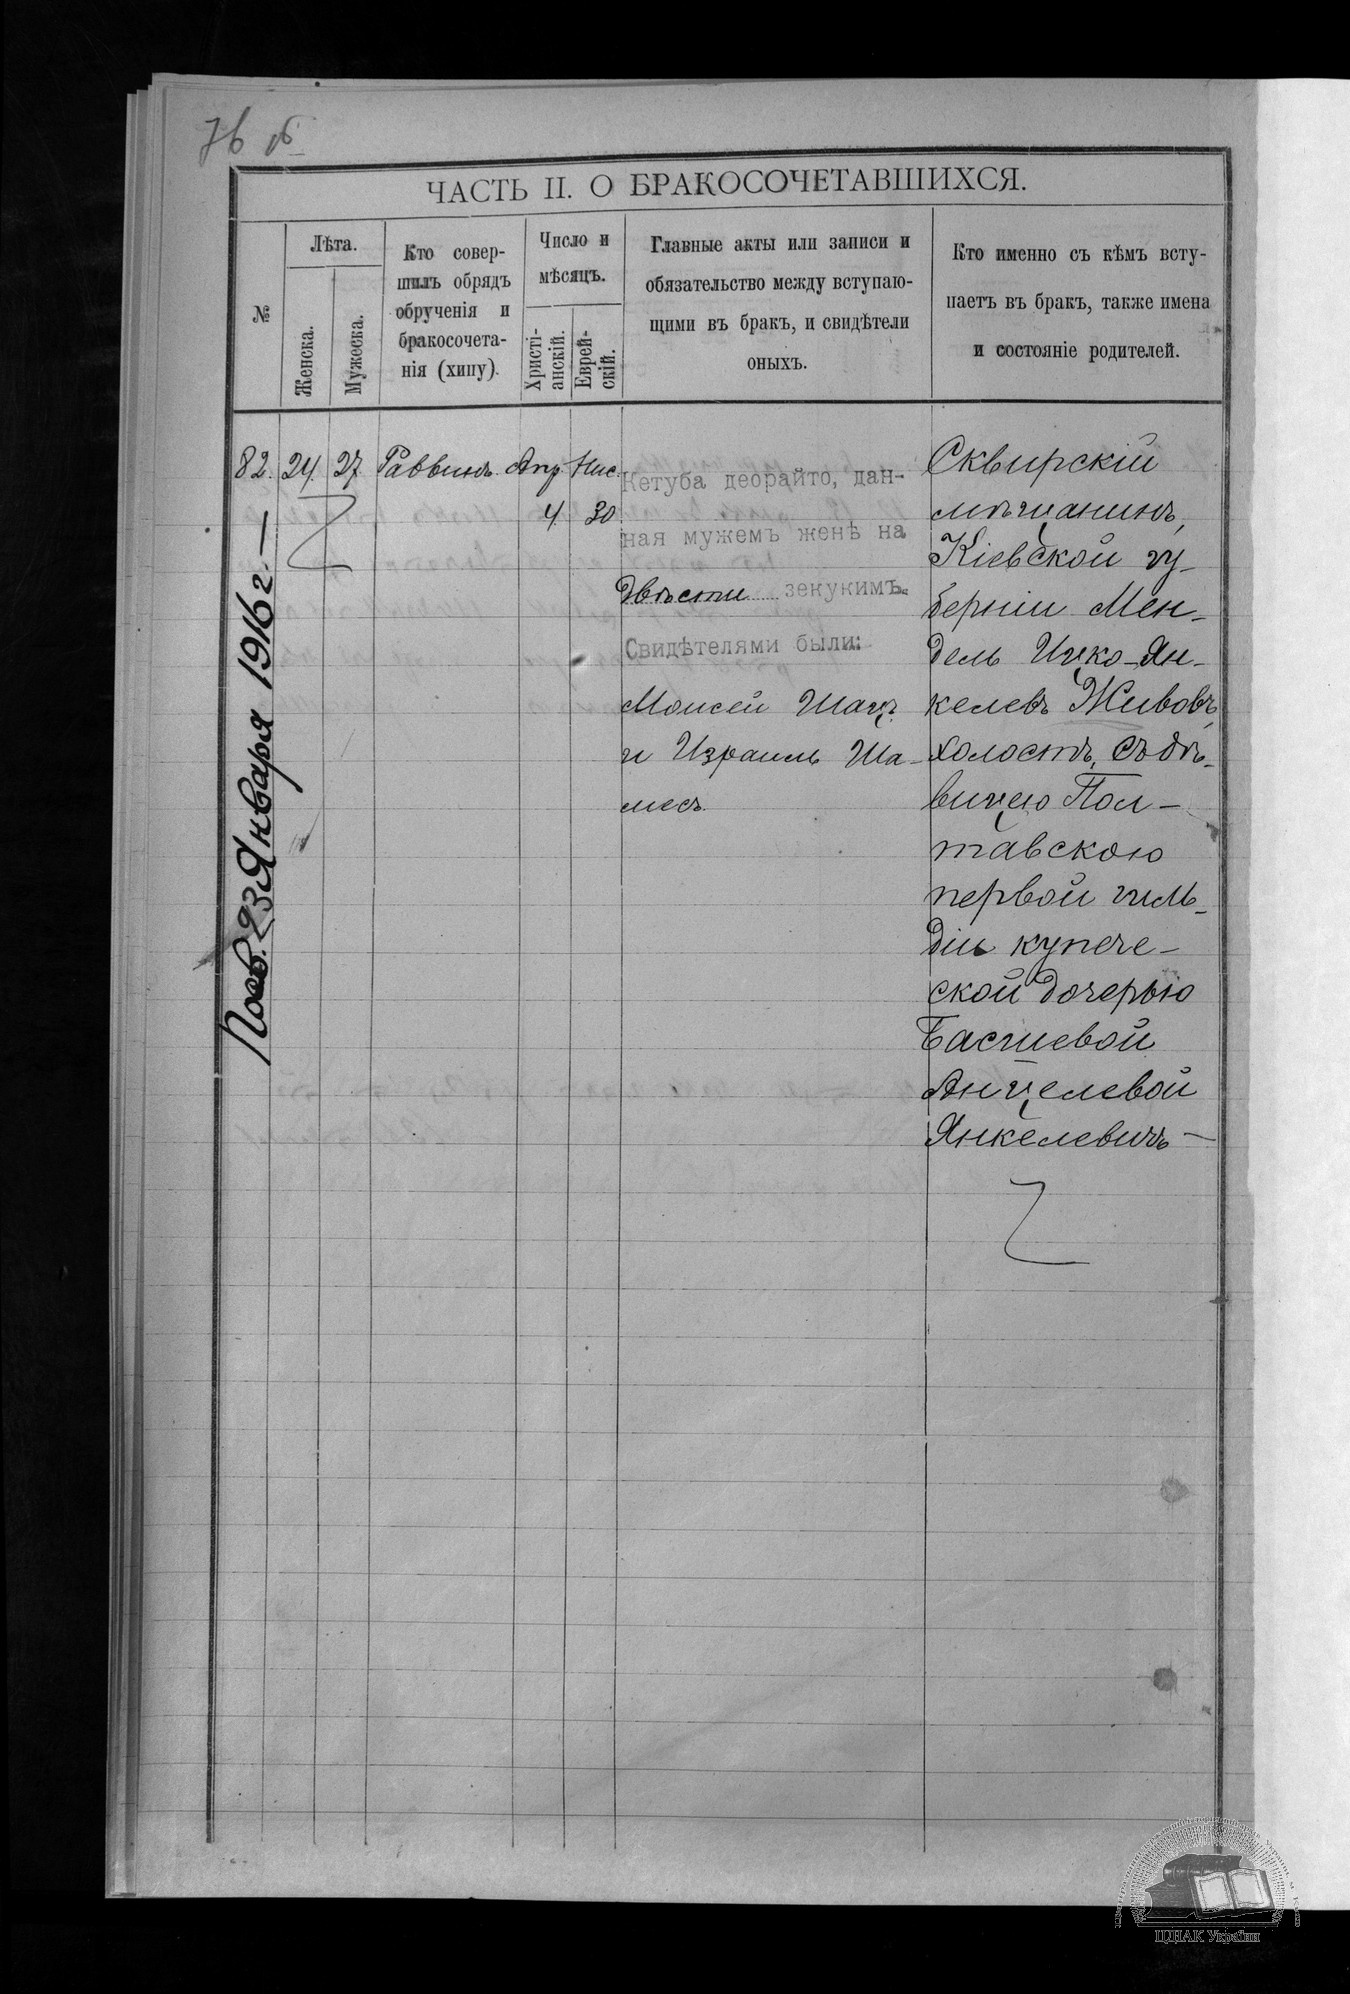 76 об
ЧАСТЬ II. О БРАКОСОЧЕТАВШИХСЯ.
№
Лѣта.
Женска.
Мужеска.
Кто совер-
шилъ обрядъ
обрученія и
бракосочета-
нія (хипу).
Число и
мѣсяцъ.
Христі-
анскій.
Еврей-
скій.
Главные акты или записи и
обязательство между вступаю-
щими въ бракъ, и свидѣтели
оныхъ.
Кто именно съ кѣмъ всту-
паетъ въ бракъ, также имена
и состояніе родителей.
82. 24. 27 Раввинъ Апр. Нис.
4 30
Кетуба деорайто, дан-
ная мужемъ женѣ на
двѣсти зекукимъ.
Свидѣтелями были:
Моисей Шацъ
и Израиль Ша-
месъ.
Сквирскій
мѣщанинъ,
Кіевской гу-
берніи Мен-
дель Ицко-Ян-
келевъ Живовъ,
холостъ, съ дѣ-
вицею Пол-
тавскою
первой гиль-
діи купече-
ской дочерью
Басшевой
Анцелевой
Янкелевичъ —
23 Января 1916 г. —
ЦДІАК України